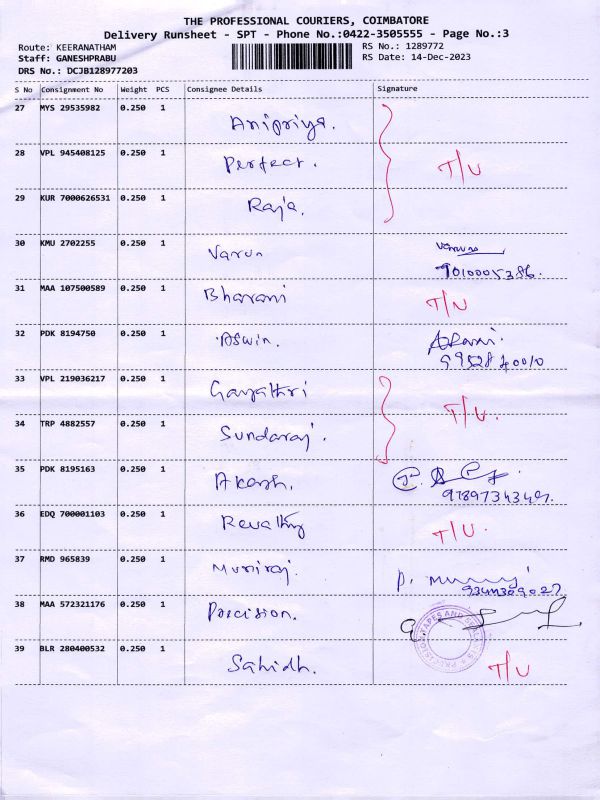 THE PROFESSIONAL COURIERS, COIMBATORE
Delivery Runsheet - SPT - Phone No.:0422-3505555 - Page No.:3
Route: KEERANATHAM RS No.: 1289772
Staff: GANESHPRABU RS Date: 14-Dec-2023
DRS No.: DCJB128977203
S No Consignment No Weight PCS Consignee Details Signature
27 MYS 29535982 0.250 1 Anipriya.
28 VPL 945408125 0.250 1 Perfect. T/U
29 KUR 7000626531 0.250 1 Raja.
30 KMU 2702255 0.250 1 Varun
9010005386.
31 MAA 107500589 0.250 1 Bharani T/U
32 PDK 8194750 0.250 1 Aswin.
33 VPL 219036217 0.250 1 Gayathri T/U.
34 TRP 4882557 0.250 1 Sundaraj.
35 PDK 8195163 0.250 1 Akash.
36 EDQ 700001103 0.250 1 Revathy T/U.
37 RMD 965839 0.250 1 Muniraj.
38 MAA 572321176 0.250 1 Precision.
39 BLR 280400532 0.250 1 Sahidh. T/U